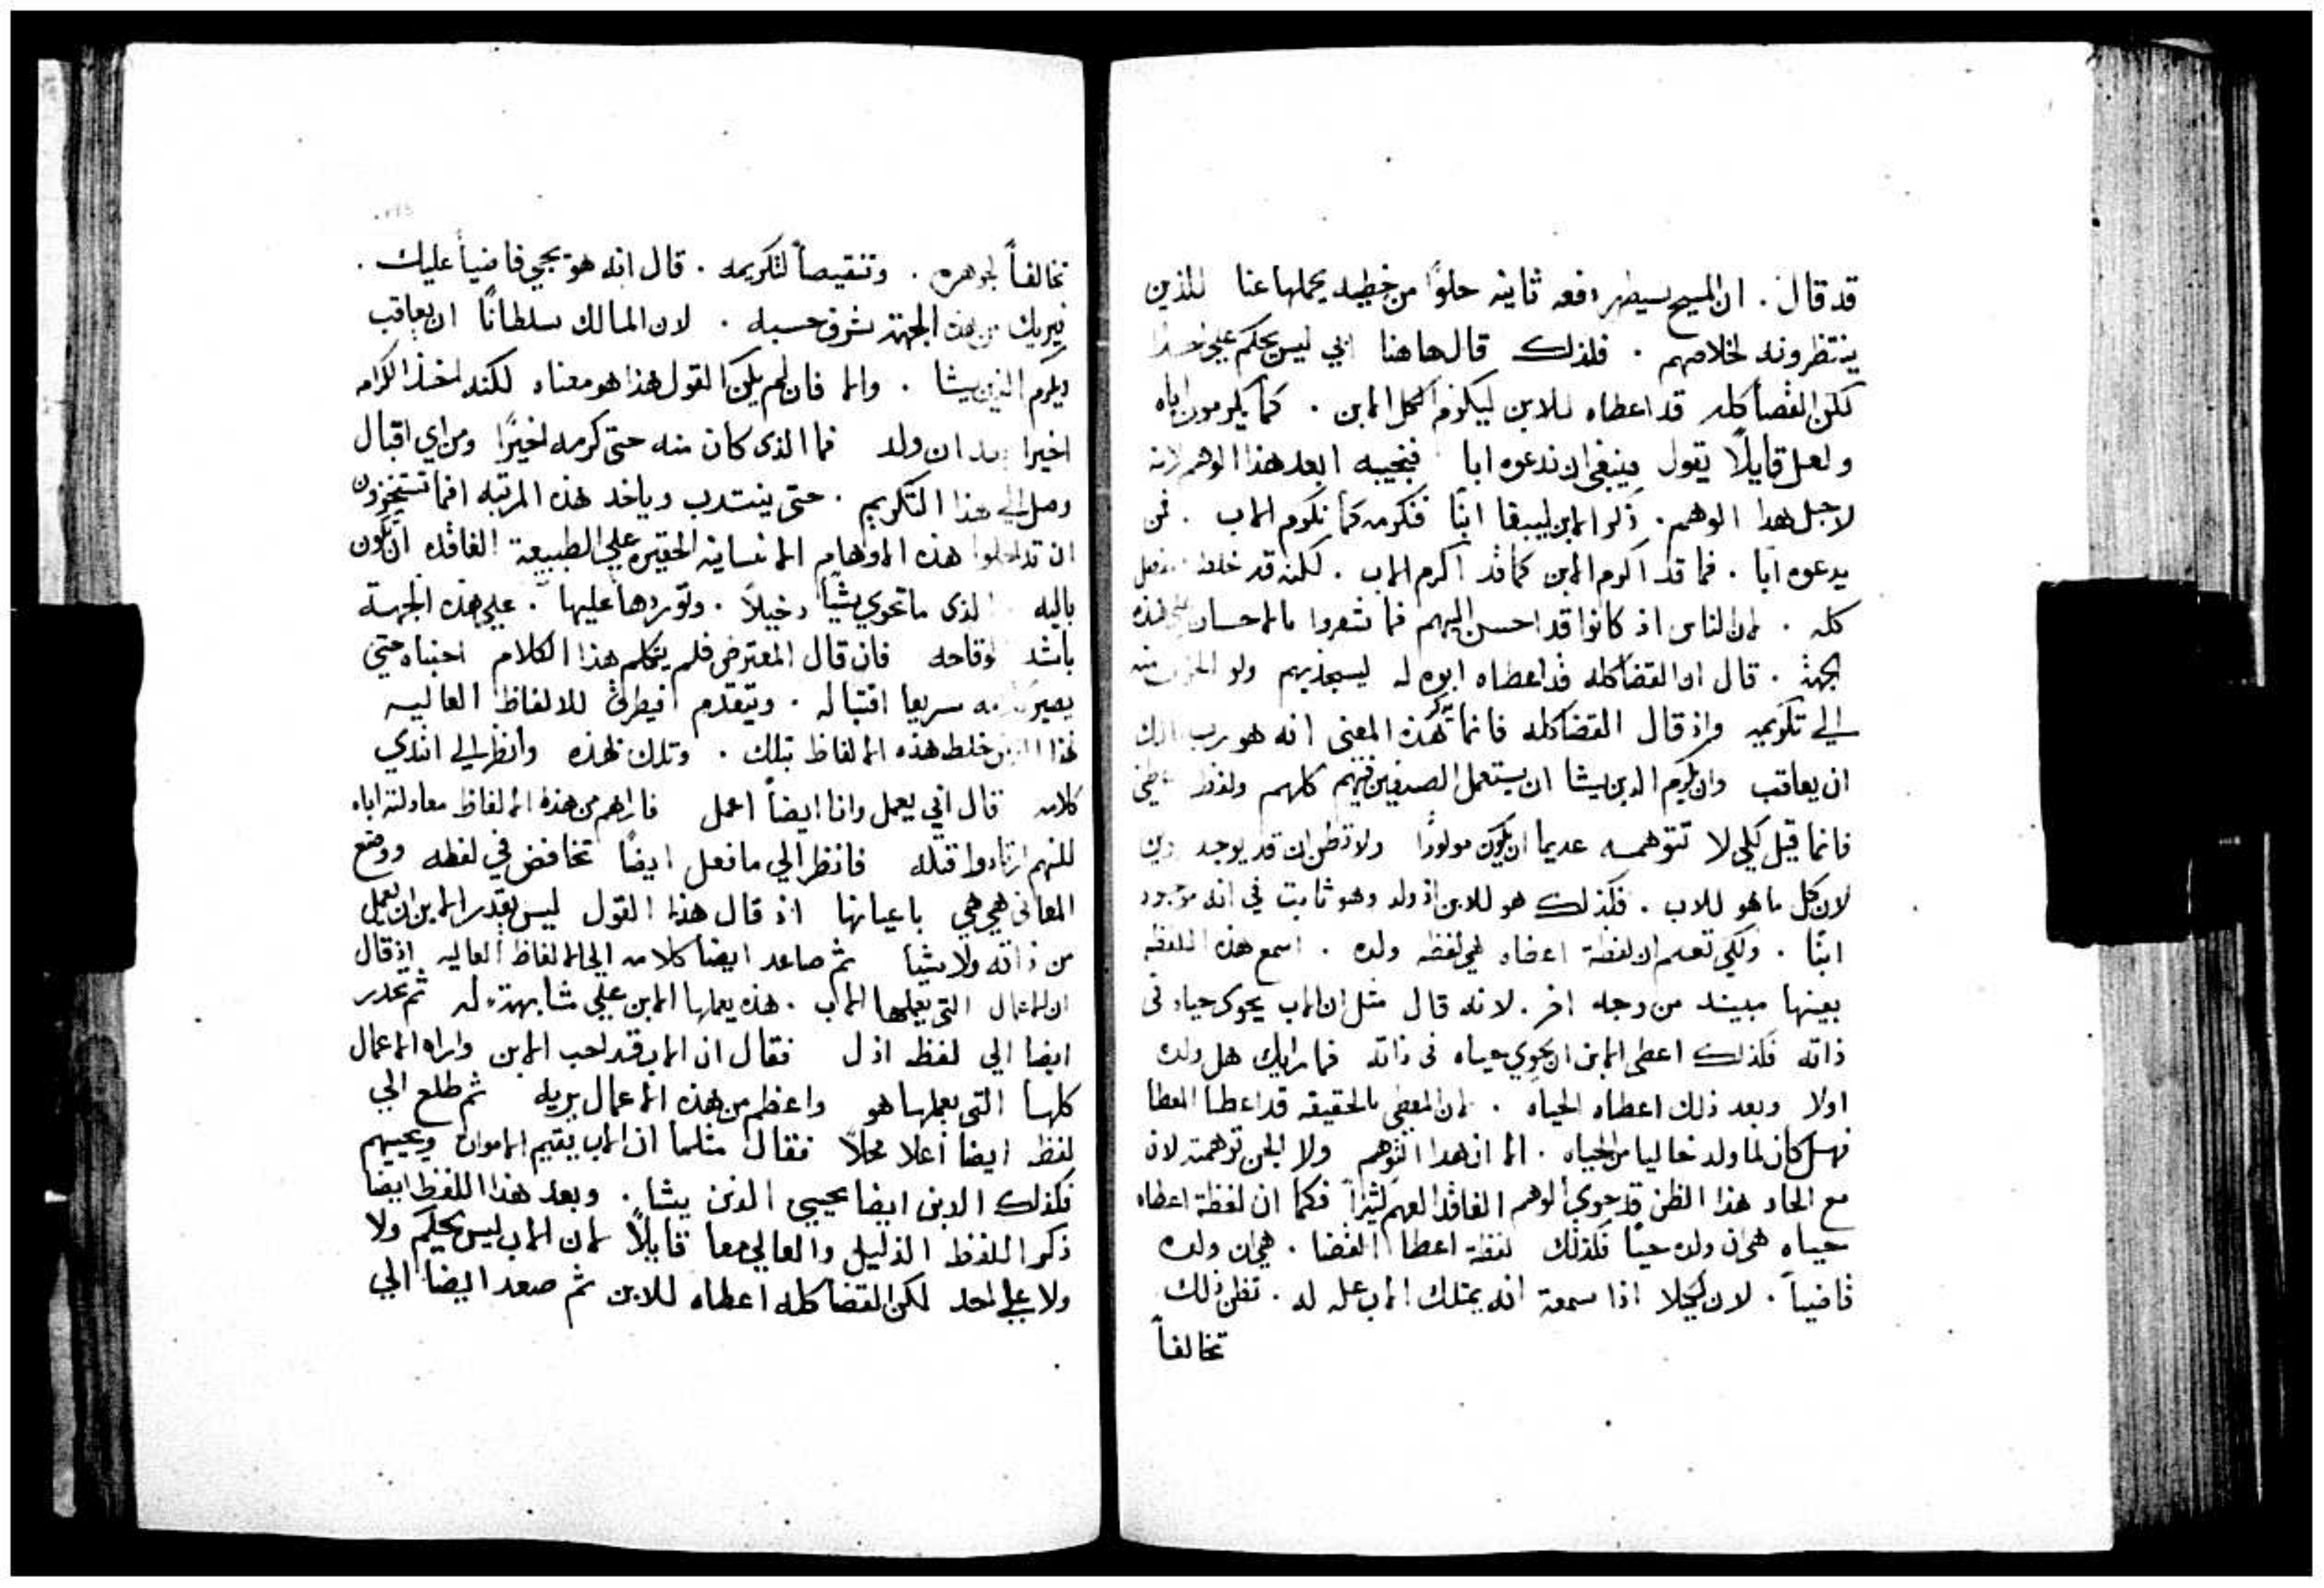 قد قال . ان المسيح سيظهر دفعه ثانيه خلوًا من خطيه يحملها عنا للذين
ينتظرونه لخلاصهم . فلذلك قال هاهنا ابي ليس يحكم على احدا
لكن القضا كله قد اعطاه للابن ليكرم الكل الابن . كما يكرمون اباه
ولعل قايلًا يقول فينبغي ان ندعوه ابا فنجيبه ابعد هذا الوهم لانه
لاجل هدا الوهم . ذكر الابن ليبقا ابنًا فنكرمه كما نكرم الاب . فمن
يدعوه ابا . فما قد اكرم الابن كما قد اكرم الاب . لكنه قد خلط
كله . لان الناس اذ كانوا قد احسن اليهم فما شعروا بالاحسان على هذه
الجهة . قال ان القضا كله قد اعطاه ابوه له ليسجديهم ولو
الي تكريمه واذ قال القضا كله فانما بهذه المعنى انه هو رب
ان يعاقب وان يكرم الدين يشا ان يستعمل الصنفين فيهم كلهم ولفظ
فانما قيل لكي لا تتوهمه عديما ان يكون مولودًا ولا تظن ان قد يوجد
لان كل ما هو للاب . فكذلك هو للابن اذ ولد وهو ثابت في انه موجود
ابنًا . ولكي تعلم ان لفظة اعطاه هي لفظه ولده . اسمع هذه اللفظه
بعينها مبينه من وجه اخر . لانه قال مثل ان الاب يحوى حياه فى
ذاته فكذلك اعطى الابن ان يحوي حياه فى ذاته فما رايك هل ولده
اولا وبعد ذلك اعطاه الحياه . لان المعطي بالحقيقه قد اعطا العطا
فهل كان لما ولد خاليا من الحياه . الا ان هدا التوهم ولا الجن توهمته لان
مع الحاد هذا الظن قد حوي الوهم الفاقد الفهم كثيرًا فكما ان لفظة اعطاه
حياه هي ان ولده حيًا فكذلك لفظة اعطا القضا . هي ان ولده
قاضيا . لان لكيلا اذا سمعة انه يمتلك الاب عله له . تظن ذلك
تخالفاً
تخالفاً لجوهره . وتنقيصاً لتكريمه . قال انه هو يجي قاضيًا عليك .
فيريك من هذه الجهة شرف حسبه . لان المالك سلطانًا ان يعاقب
ويكرم الذين يشا . والا فان لم يكن القول هذا هو معناه لكنه اخذ الكرامه
اخيرا بعد ان ولد فما الذى كان منه حتى كرمه اخيرًا ومن اي اقبال
وصل الي هذا التكريم . حتى ينتدب وياخد هذه المرتبه افما تستخزون
ان تدخلوا هذه الاوهام الانسانيه الحقيره علي الطبيعة الفاقده ان تكون
باليه الذى ما تحوي شيًا دخيلًا . وتوردها عليها . علي هذه الجهة
باشد وقاحه فان قال المعترض فلم يتكلم هذا الكلام اجبناه حتي
يصير سريعا اقتباله . ويتقدم افيطرق للالفاظ العاليه
لهذا خلط هذه الالفاظ بتلك . وتلك بهذه وانظر الي
كلامه قال ابي يعمل وانا ايضاً اعمل فاراهم من هذه الالفاظ معادلته اباه
لكنهم ارتادوا قتله فانظر الي ما فعل ايضًا تخافض في لفظه ووضع
المعانى هي هي باعيانها اذ قال هذا القول ليس يقدر الابن ان يعمل
من ذاته ولا شيا ثم صاعد ايضا كلامه الي الالفاظ العاليه اذ قال
ان الاعمال التي يعملها الاب . هذه يعملها الابن علي مشابهة له ثم تحدر
ايضا الي لفظه اذل فقال ان الاب قد احب الابن واراه الاعمال
كلها التى يعملها هو واعظم من هذه الاعمال يريه ثم طلع الي
لفظ ايضا اعلا محلًا فقال مثلما ان الاب يقيم الاموات ويحييهم
فكذلك الابن ايضا يحيي الذين يشا . وبعد هذا اللفظ ايضا
ذكر اللفظ الذليل والعالي معا قايلًا لان الاب ليس يحكم ولا
ولا علي احد لكن القضا كله اعطاه للابن ثم صعد ايضا الي